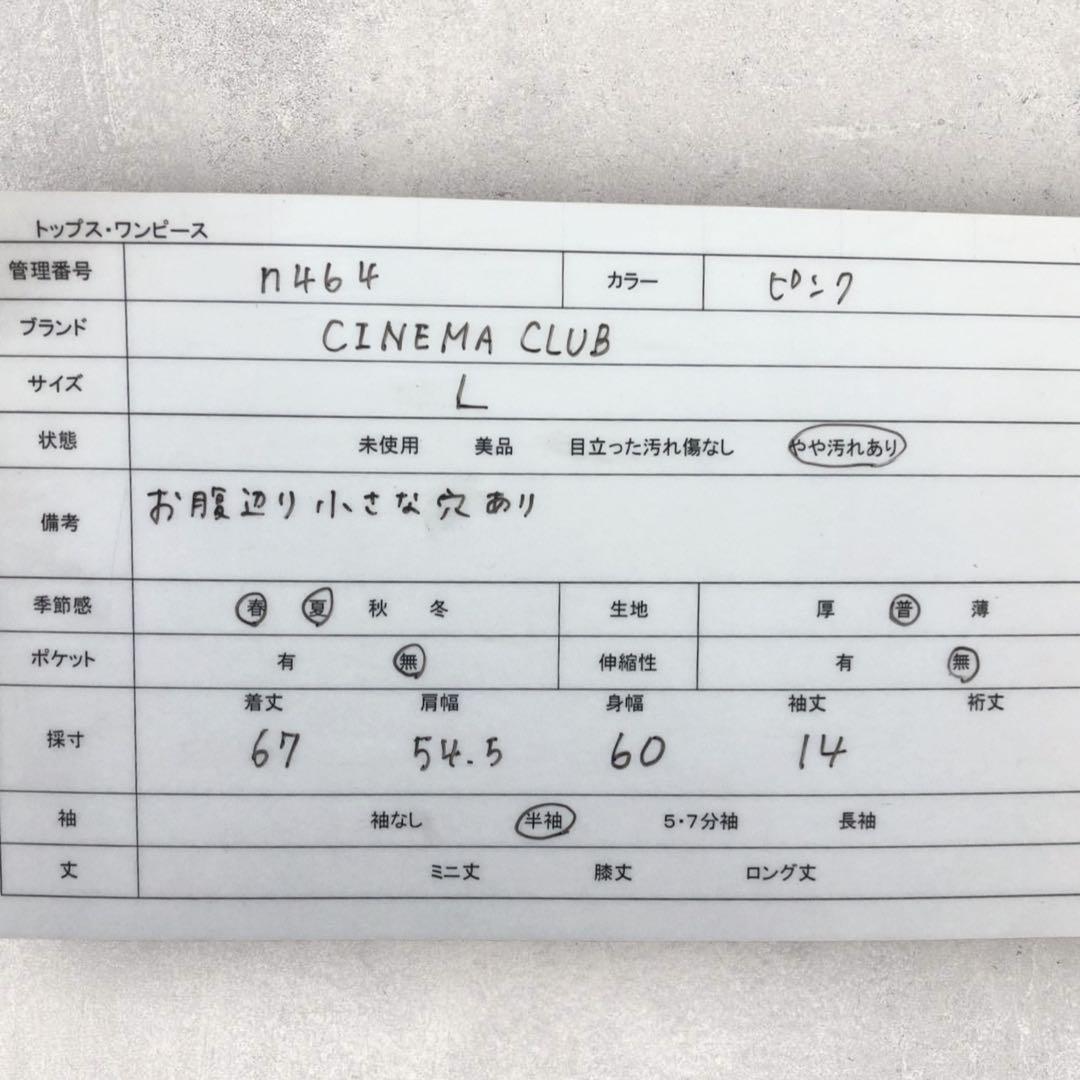 トップス・ワンピース
管理番号 n464 カラー ピンク
ブランド CINEMA CLUB
サイズ L
状態 未使用 美品 目立った汚れ傷なし やや汚れあり
備考 お腹辺り小さな穴あり
季節感 春 夏 秋 冬 生地 厚 普 薄
ポケット 有 無 伸縮性 有 無
着丈 肩幅 身幅 袖丈 裄丈
採寸 67 54.5 60 14
袖 袖なし 半袖 5・7分袖 長袖
丈 ミニ丈 膝丈 ロング丈